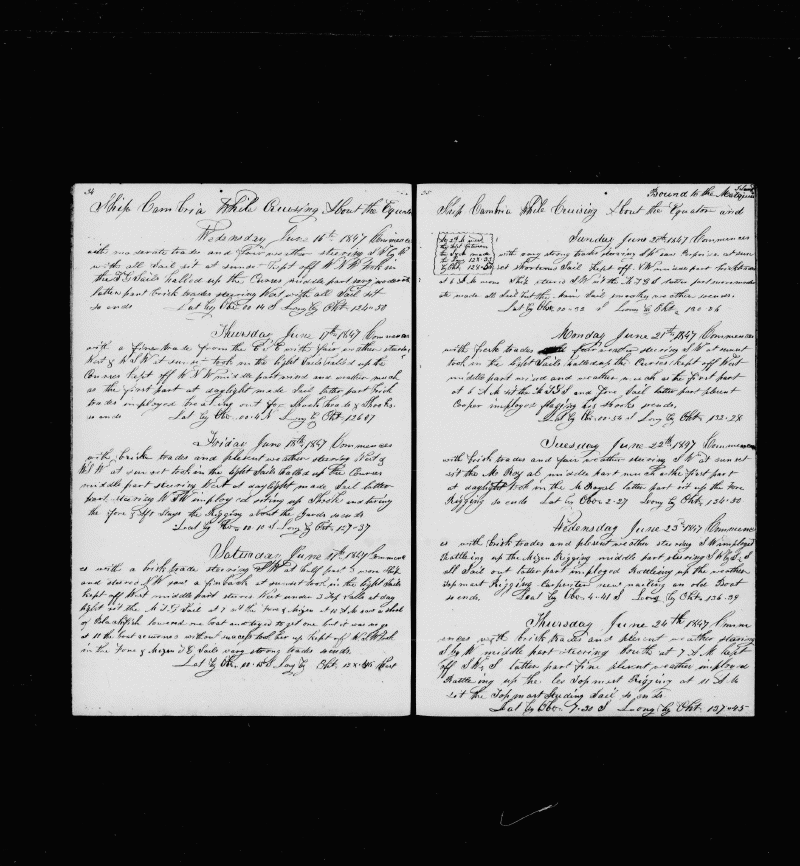 54
Ship Cambria While Cruising About the Equator
Wednesday June 16th 1847 Commences
with moderate trades and fair weather steering S W by W
with all Sail set at sunset kept off W N W took in
the T G Sails halled up the Courses middle part
latter part brisk trades steering West with all Sail set
so ends Lat by Obs 00-14 S Long by Cht 124-50
Thursday June 17th 1847 Commences
with a fine trade from the with fair weather steering
West & W S W at sunset took in the light Sails halled up the
Courses kept off W N W middle part wind and weather much
as the first part at daylight made Sail latter part brisk
trades imployed breaking out for Shook heads & Shooks
so ends Lat by Obs 00-4 S Long by Cht 126-07
Friday June 18th 1847 Commences
with brisk trades and plesent weather steering West &
W S W at sun set took in the light Sails halled up the Courses
middle part steering West at daylight made Sail latter
part steering W imployed seting up Shook and
the fore & aft Stays the Rigging about the Yards so ends
Lat by Obs 00-10 S Long by Cht 127-37
Saturday June 19th 1847 Commenc
es with a brisk trade steering S W at half past 3 wore Ship
and steered N W saw a finback at sunset took in the light Sails
kept off West middle part steers West under 3 Topsails at day
light set the M T G Sail at 7 set the Fore & Mizen at 10 A M saw a shoal
of Blackfish lowered one boat and tryed to get one but it was no go
at 11 the boat returned without success took her up kept off W S W took
in the Fore & Mizen T G Sails very strong trades so ends
Lat by Obs 00-13 S Long by Cht 128-46 West
55
Bound to the Marquesas Islands
Ship Cambria While Cruising About the Equator and
Sunday June 20th 1847 Commences
with very strong trades steering S W saw at sun
set shortened Sail kept off S W middle part
at 6 A M wore Ship steers S W set the M T G S latter part
made all Sail but the Main Sail smoky weather so ends
Lat by Obs 00-32 S Long by Cht 130-26
Monday June 21st 1847 Commences
with fresh trades fair weather steering S W at sunset
took in the light Sails halled up the Courses kept off West
middle part wind and weather much as the first part
at 6 A M set the M T G S and Fore Sail latter part plesent
Cooper imployed flaging his shooks so ends
Lat by Obs 00-54 S Long by Cht 132-28
Tuesday June 22th 1847 Commences
with brisk trades and fair weather steering S W at sunset
set the M Royal middle part much as the first part
at daylight took in the M Royal latter part set up the fore
Rigging so ends Lat by Obs 2-27 Long by Cht 134-30
Wedensday June 23d 1847 Commenc
es with brisk trades and plesent weather steering S W imployed
Rattleing up the Mizen Rigging middle part steering S W by S
all Sail out latter part imployed Rattleing up the weather
Topmast Rigging carpenter new nailing an old Boat
so ends Lat by Obs 4-41 S Long by Cht 136-39
Thursday June 24th 1847 Comm
ences with brisk trades and plesent weather steering
S by W middle part steering South at 7 A M kept
off S by S latter part fine plesent weather imployed
Rattleing up the lee Topmast Rigging at 11 A M
set the Topmast Studing Sail so ends
Lat by Obs 7-30 S Long by Cht 137-45